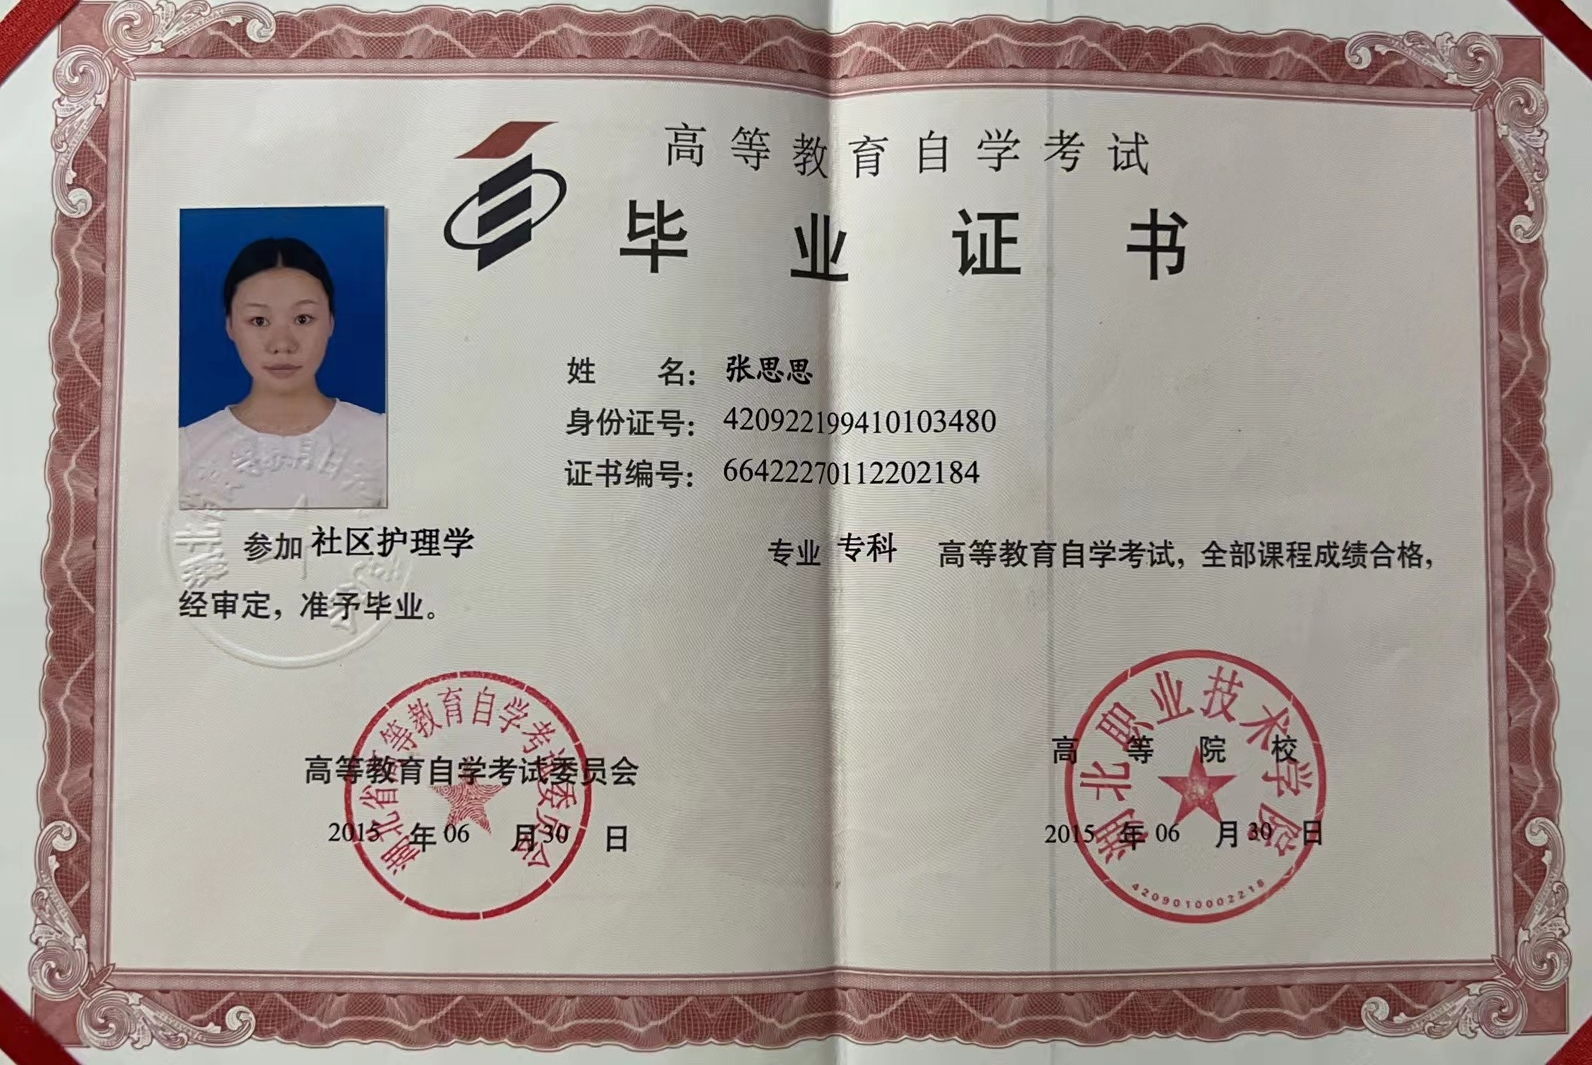 高等教育自学考试
毕业证书
姓名：张思思
身份证号：420922199410103480
证书编号：66422270112202184
参加 社区护理学 专业 专科 高等教育自学考试，全部课程成绩合格，
经审定，准予毕业。
湖北省高等教育自学考试委员会
高等教育自学考试委员会
2015年06月30日
湖北职业技术学院
高等院校
2015年06月30日
4209010002218